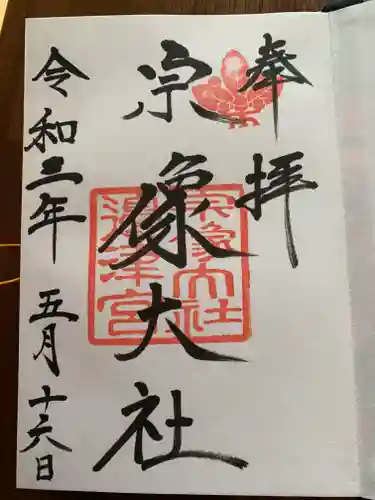 奉拝
宗像大社
令和三年 五月十六日
宗像大社
邊津宮